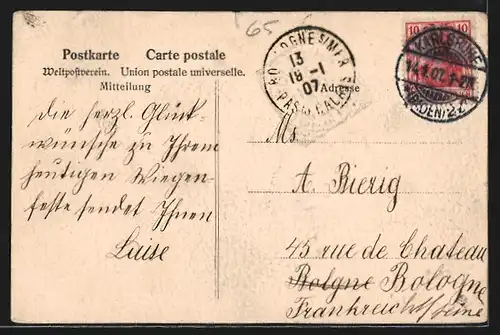 65
Postkarte Carte postale
Weltpostverein. Union postale universelle.
Mitteilung
Adresse
BOULOGNE S/MER
13
18 -1
07
PAS-DE-CALAIS
10 10
KARLSRUHE
14.1.07. 1-2N
(BADEN) 2 Z
Die herzl. Glück-
wünsche zu Ihrem
heutigen Wiegen-
feste sendet Ihnen
Luise
Ms.
A. Bierig
45 rue de Chateau
Bolgne Bologne
Frankreich s/seine